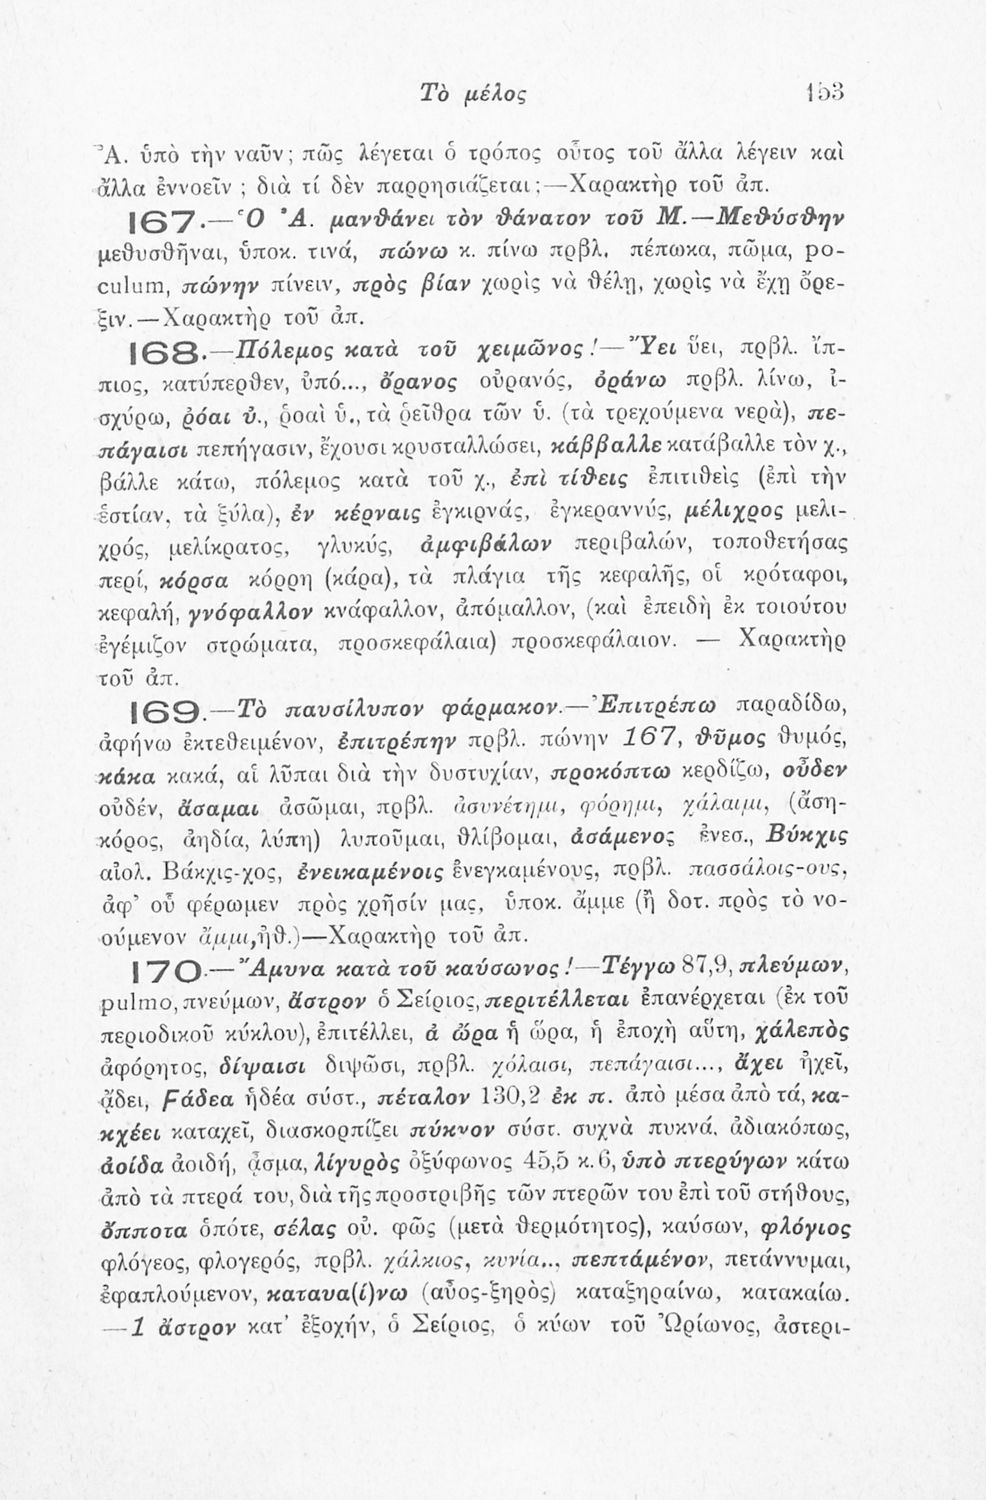 Τὸ μέλος 153
Ἀ. ὑπὸ τὴν ναῦν; πῶς λέγεται ὁ τρόπος οὗτος τοῦ ἄλλα λέγειν καὶ
ἄλλα ἐννοεῖν ; διὰ τί δὲν παρρησιάζεται;—Χαρακτὴρ τοῦ ἀπ.
167.—Ὁ Ἀ. μανθάνει τὸν θάνατον τοῦ Μ.—Μεθύσθην
μεθυσθῆναι, ὑποκ. τινά, πώνω κ. πίνω πρβλ. πέπωκα, πῶμα, po-
culum, πώνην πίνειν, πρὸς βίαν χωρὶς νὰ θέλῃ, χωρὶς νὰ ἔχῃ ὄρε-
ξιν.—Χαρακτὴρ τοῦ ἀπ.
168.—Πόλεμος κατὰ τοῦ χειμῶνος!—Υ̓́ει ὕει, πρβλ. ἵπ-
πιος, κατύπερθεν, ὑπό..., ὄρανος οὐρανός, ὀράνω πρβλ. λίνω, ἰ-
σχύρω, ῥόαι ὐ., ῥοαὶ ὑ., τὰ ῥεῖθρα τῶν ὑ. (τὰ τρεχούμενα νερὰ), πε-
πάγαισι πεπήγασιν, ἔχουσι κρυσταλλώσει, κάββαλλε κατάβαλλε τὸν χ.,
βάλλε κάτω, πόλεμος κατὰ τοῦ χ., ἐπὶ τίθεις ἐπιτιθεὶς (ἐπὶ τὴν
ἑστίαν, τὰ ξύλα), ἐν κέρναις ἐγκιρνάς, ἐγκεραννύς, μέλιχρος μελι-
χρός, μελίκρατος, γλυκύς, ἀμφιβάλων περιβαλών, τοποθετήσας
περί, κόρσα κόρρη (κάρα), τὰ πλάγια τῆς κεφαλῆς, οἱ κρόταφοι,
κεφαλή, γνόφαλλον κνάφαλλον, ἀπόμαλλον, (καὶ ἐπειδὴ ἐκ τοιούτου
ἐγέμιζον στρώματα, προσκεφάλαια) προσκεφάλαιον. — Χαρακτὴρ
τοῦ ἀπ.
169.—Τὸ παυσίλυπον φάρμακον.—Ἐπιτρέπω παραδίδω,
ἀφήνω ἐκτεθειμένον, ἐπιτρέπην πρβλ. πώνην 167, θῦμος θυμός,
κάκα κακά, αἱ λῦπαι διὰ τὴν δυστυχίαν, προκόπτω κερδίζω, οὖδεν
οὐδέν, ἄσαμαι ἀσῶμαι, πρβλ. ἀσυνέτημι, φόρημι, χάλαιμι, (ἄση-
κόρος, ἀηδία, λύπη) λυποῦμαι, θλίβομαι, ἀσάμενος ἐνεσ., Βύκχις
αἰολ. Βάκχις-χος, ἐνεικαμένοις ἐνεγκαμένους, πρβλ. πασσάλοις-ους,
ἀφ’ οὗ φέρωμεν πρὸς χρῆσίν μας, ὑποκ. ἄμμε (ἢ δοτ. πρὸς τὸ νο-
ούμενον ἄμμι, ἠθ.)—Χαρακτὴρ τοῦ ἀπ.
170.—Ἄμυνα κατὰ τοῦ καύσωνος!—Τέγγω 87,9, πλεύμων,
pulmo, πνεύμων, ἄστρον ὁ Σείριος, περιτέλλεται ἐπανέρχεται (ἐκ τοῦ
περιοδικοῦ κύκλου), ἐπιτέλλει, ἀ ὤρα ἡ ὥρα, ἡ ἐποχὴ αὕτη, χάλεπὸς
ἀφόρητος, δίψαισι διψῶσι, πρβλ. χόλαισι, πεπάγαισι..., ἄχει ἠχεῖ,
ᾄδει, Ϝάδεα ἡδέα σύστ., πέταλον 130,2 ἐκ π. ἀπὸ μέσα ἀπὸ τά, κα-
κχέει καταχεῖ, διασκορπίζει πύκνον σύστ. συχνὰ πυκνά, ἀδιακόπως,
ἀοίδα ἀοιδή, ᾆσμα, λίγυρὸς ὀξύφωνος 45,5 κ. 6, ὑπὸ πτερύγων κάτω
ἀπὸ τὰ πτερά του, διὰ τῆς προστριβῆς τῶν πτερῶν του ἐπὶ τοῦ στήθους,
ὄπποτα ὁπότε, σέλας οὐ. φῶς (μετὰ θερμότητος), καύσων, φλόγιος
φλόγεος, φλογερός, πρβλ. χάλκιος, κυνία.., πεπτάμένον, πετάννυμαι,
ἐφαπλούμενον, καταυα(ί)νω (αὖος-ξηρὸς) καταξηραίνω, κατακαίω.
—1 ἄστρον κατ’ ἐξοχήν, ὁ Σείριος, ὁ κύων τοῦ Ὠρίωνος, ἀστερι-